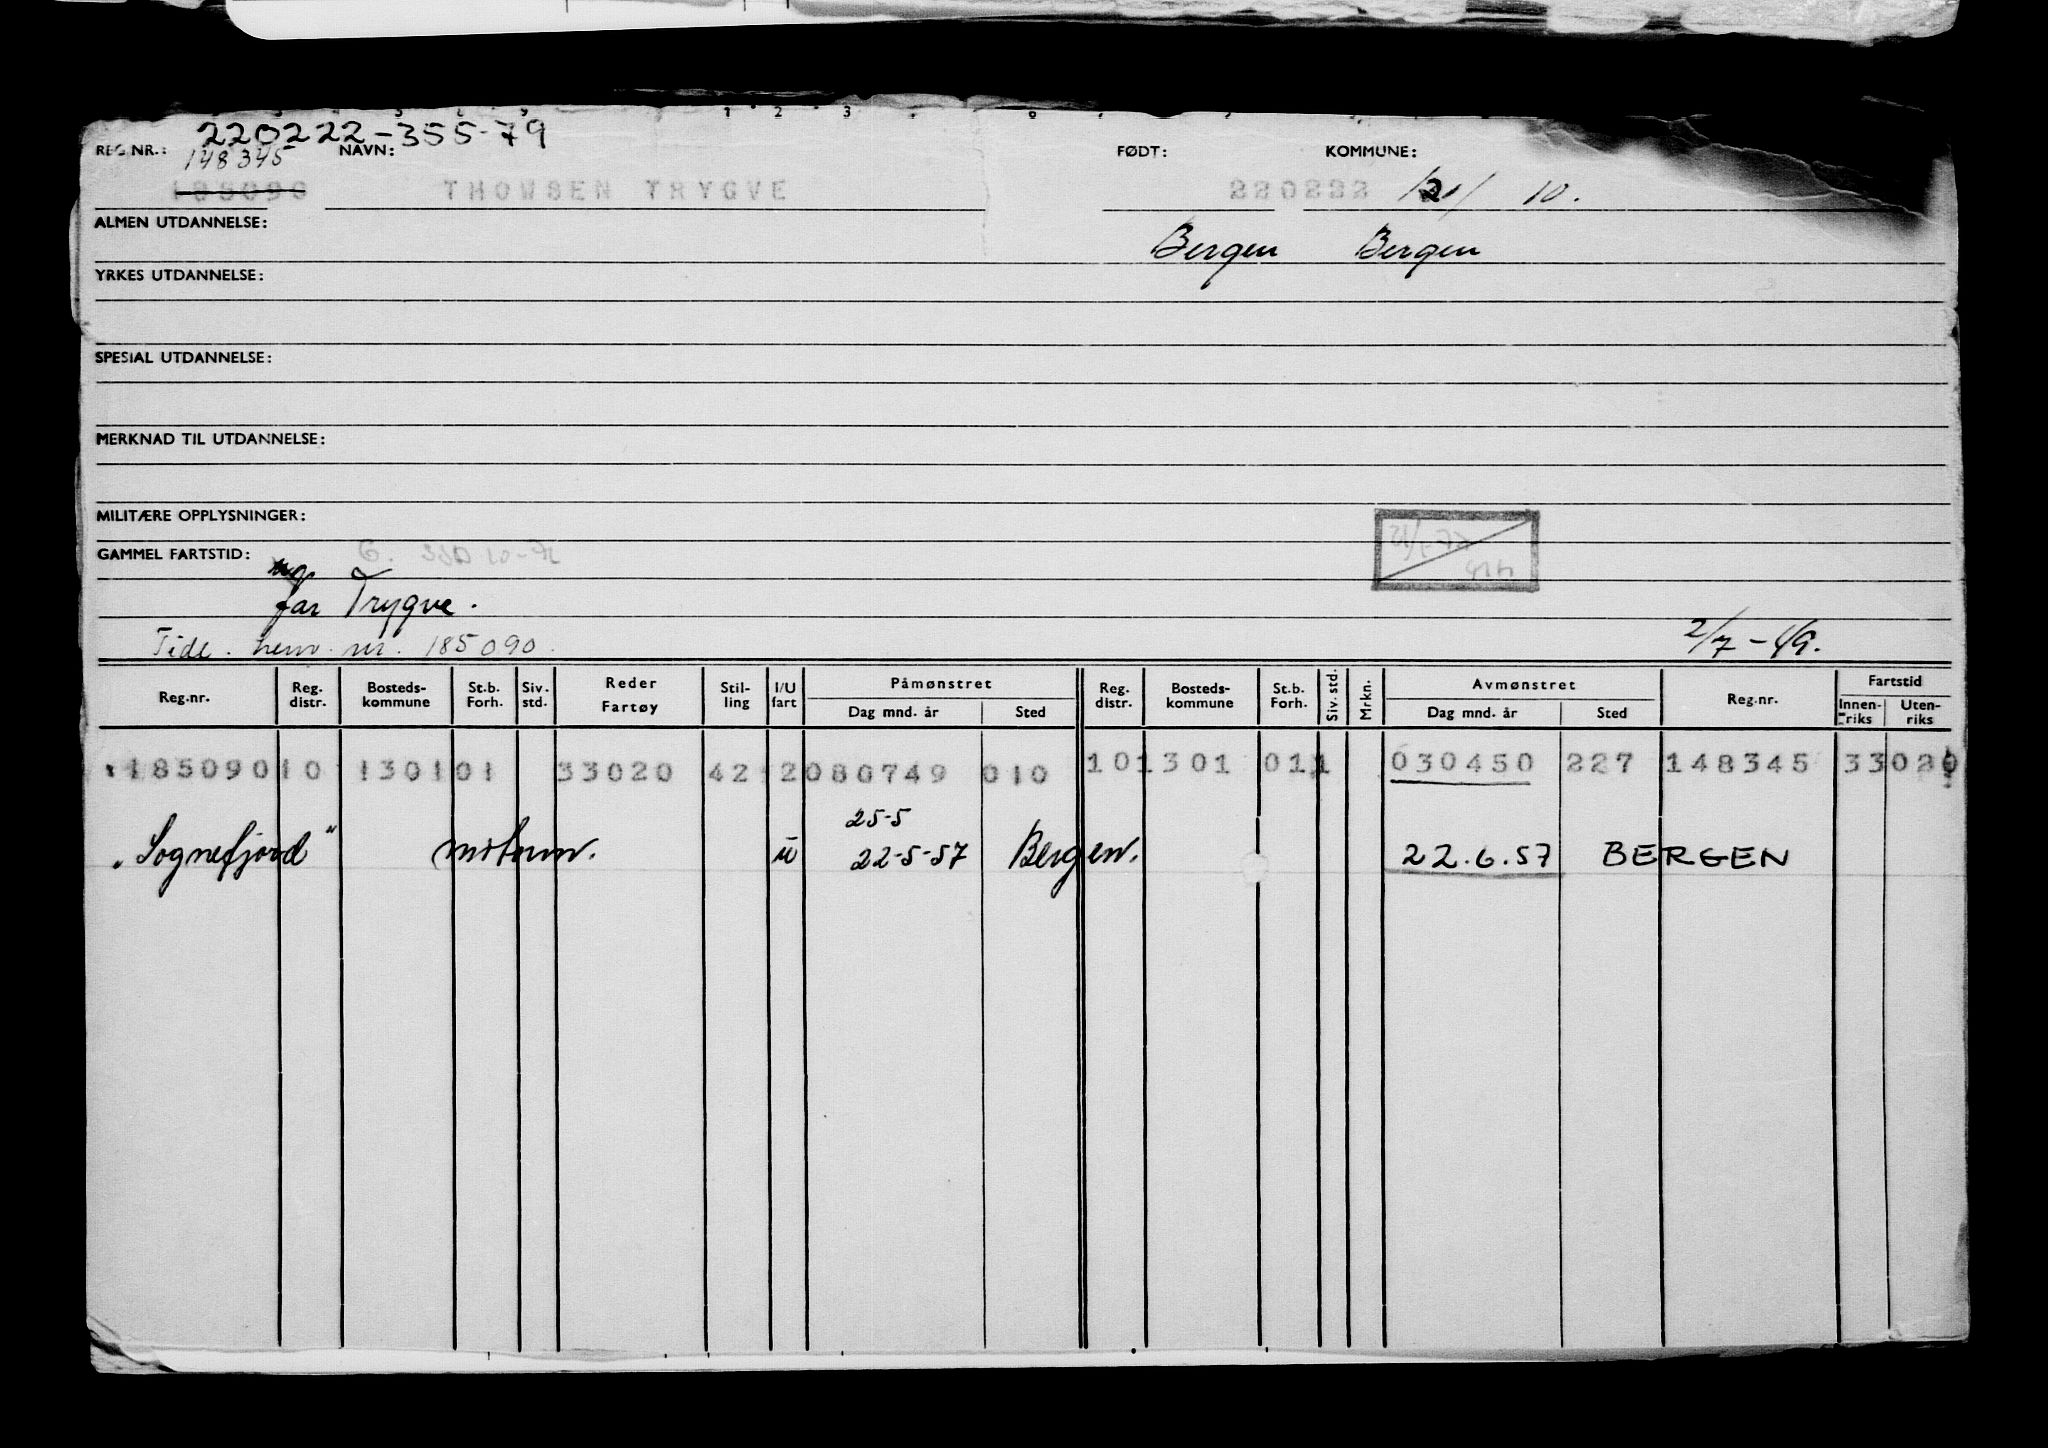 220222-355-79
REG.NR.: NAVN: FØDT: KOMMUNE:
148345
185090 THOWSEN TRYGVE 220222 10.
ALMEN UTDANNELSE: Bergen Bergen
YRKES UTDANNELSE:
SPESIAL UTDANNELSE:
MERKNAD TIL UTDANNELSE:
MILITÆRE OPPLYSNINGER:
GAMMEL FARTSTID:
far Trygve.
Tidl. henv. nr. 185090. 2/7-49.
Reg.nr. Reg. distr. Bosteds-kommune St.b. Forh. Siv. std. Reder Fartøy Stil-ling I/U fart Påmønstret Dag mnd. år Sted Reg. distr. Bosteds-kommune St.b. Forh. Siv. std. Mrkn. Avmønstret Dag mnd. år Sted Reg.nr. Fartstid Innen-riks Uten-riks
185090 10 1301 01 33020 42 2 080749 010 10 1301 01 1 030450 227 148345 33020
25-5
"Sognefjord" motorm. u 22-5-57 Bergen. 22.6.57 BERGEN